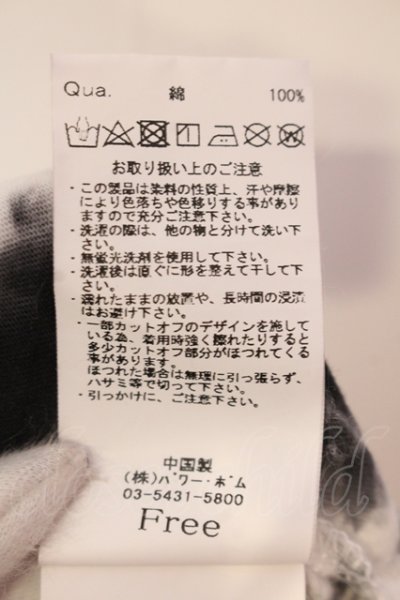 Qua. 綿 100%
お取り扱い上のご注意
・この製品は染料の性質上、汗や摩擦
により色落ちや色移りする事があり
ますので充分ご注意下さい。
・洗濯の際は、他の物と分けて洗い下
さい。
・無蛍光洗剤を使用して下さい。
・洗濯後は直ぐに形を整えて干して下
さい。
・濡れたままの放置や、長時間の浸漬
はお避け下さい。
・一部カットオフのデザインを施して
いる為、着用時強く擦れたりすると
多少カットオフ部分がほつれてくる
事があります。
ほつれた場合は無理に引っ張らず、
ハサミ等で切って下さい。
・引っかけに、ご注意下さい。
中国製
(株)パワー・ホーム
03-5431-5800
Free